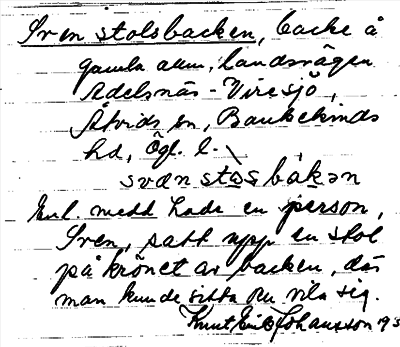 Sven stolsbacken, backe å
gamla allm. landsvägen
Adelsnäs - Viresjö,
Åtvids sn, Bankekinds
hd, Ögl. l.
svæn stωs bak̲ən
Enl. medd hade en person,
Sven, satt upp en stol
på krönet av backen, där
man kunde sitta o. vila sig.
Knut Eric Johansson 193